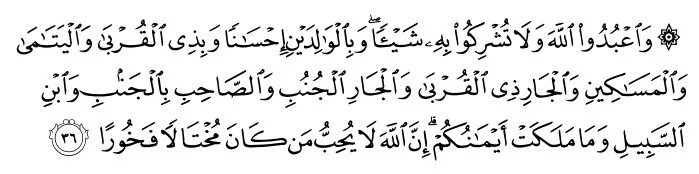 ۞ وَٱعْبُدُوا۟ ٱللَّهَ وَلَا تُشْرِكُوا۟ بِهِۦ شَيْـًٔا ۖ وَبِٱلْوَٰلِدَيْنِ إِحْسَـٰنًا وَبِذِى ٱلْقُرْبَىٰ وَٱلْيَتَـٰمَىٰ
وَٱلْمَسَـٰكِينِ وَٱلْجَارِ ذِى ٱلْقُرْبَىٰ وَٱلْجَارِ ٱلْجُنُبِ وَٱلصَّاحِبِ بِٱلْجَنۢبِ وَٱبْنِ
ٱلسَّبِيلِ وَمَا مَلَكَتْ أَيْمَـٰنُكُمْ ۗ إِنَّ ٱللَّهَ لَا يُحِبُّ مَن كَانَ مُخْتَالًا فَخُورًا ٣٦